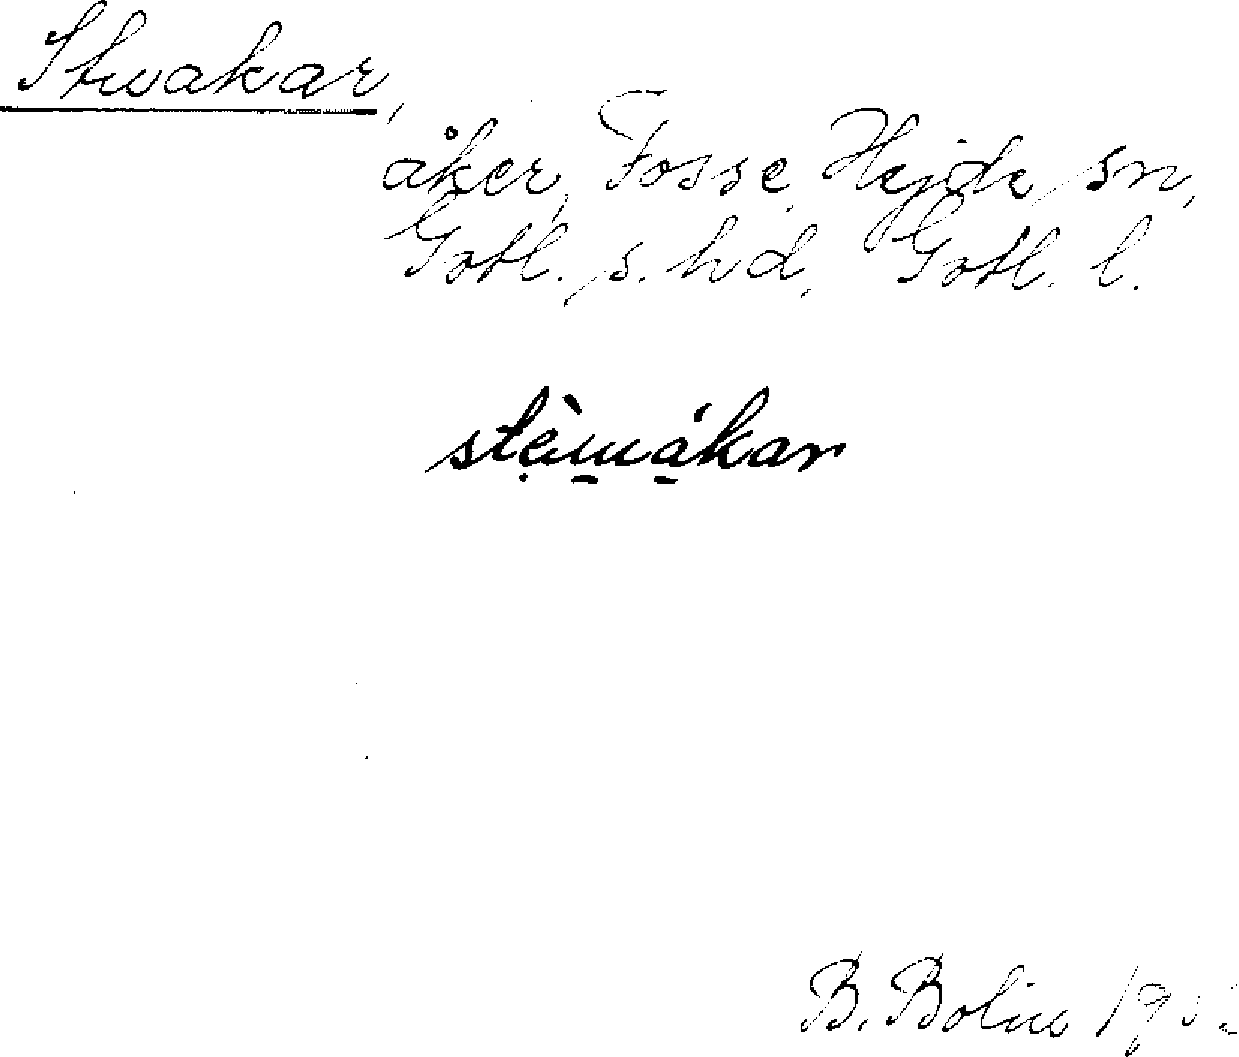 Stuakar,
åker, Fosse, Hejde sn,
Gotl. s. hd, Gotl. l.
B. Bolin